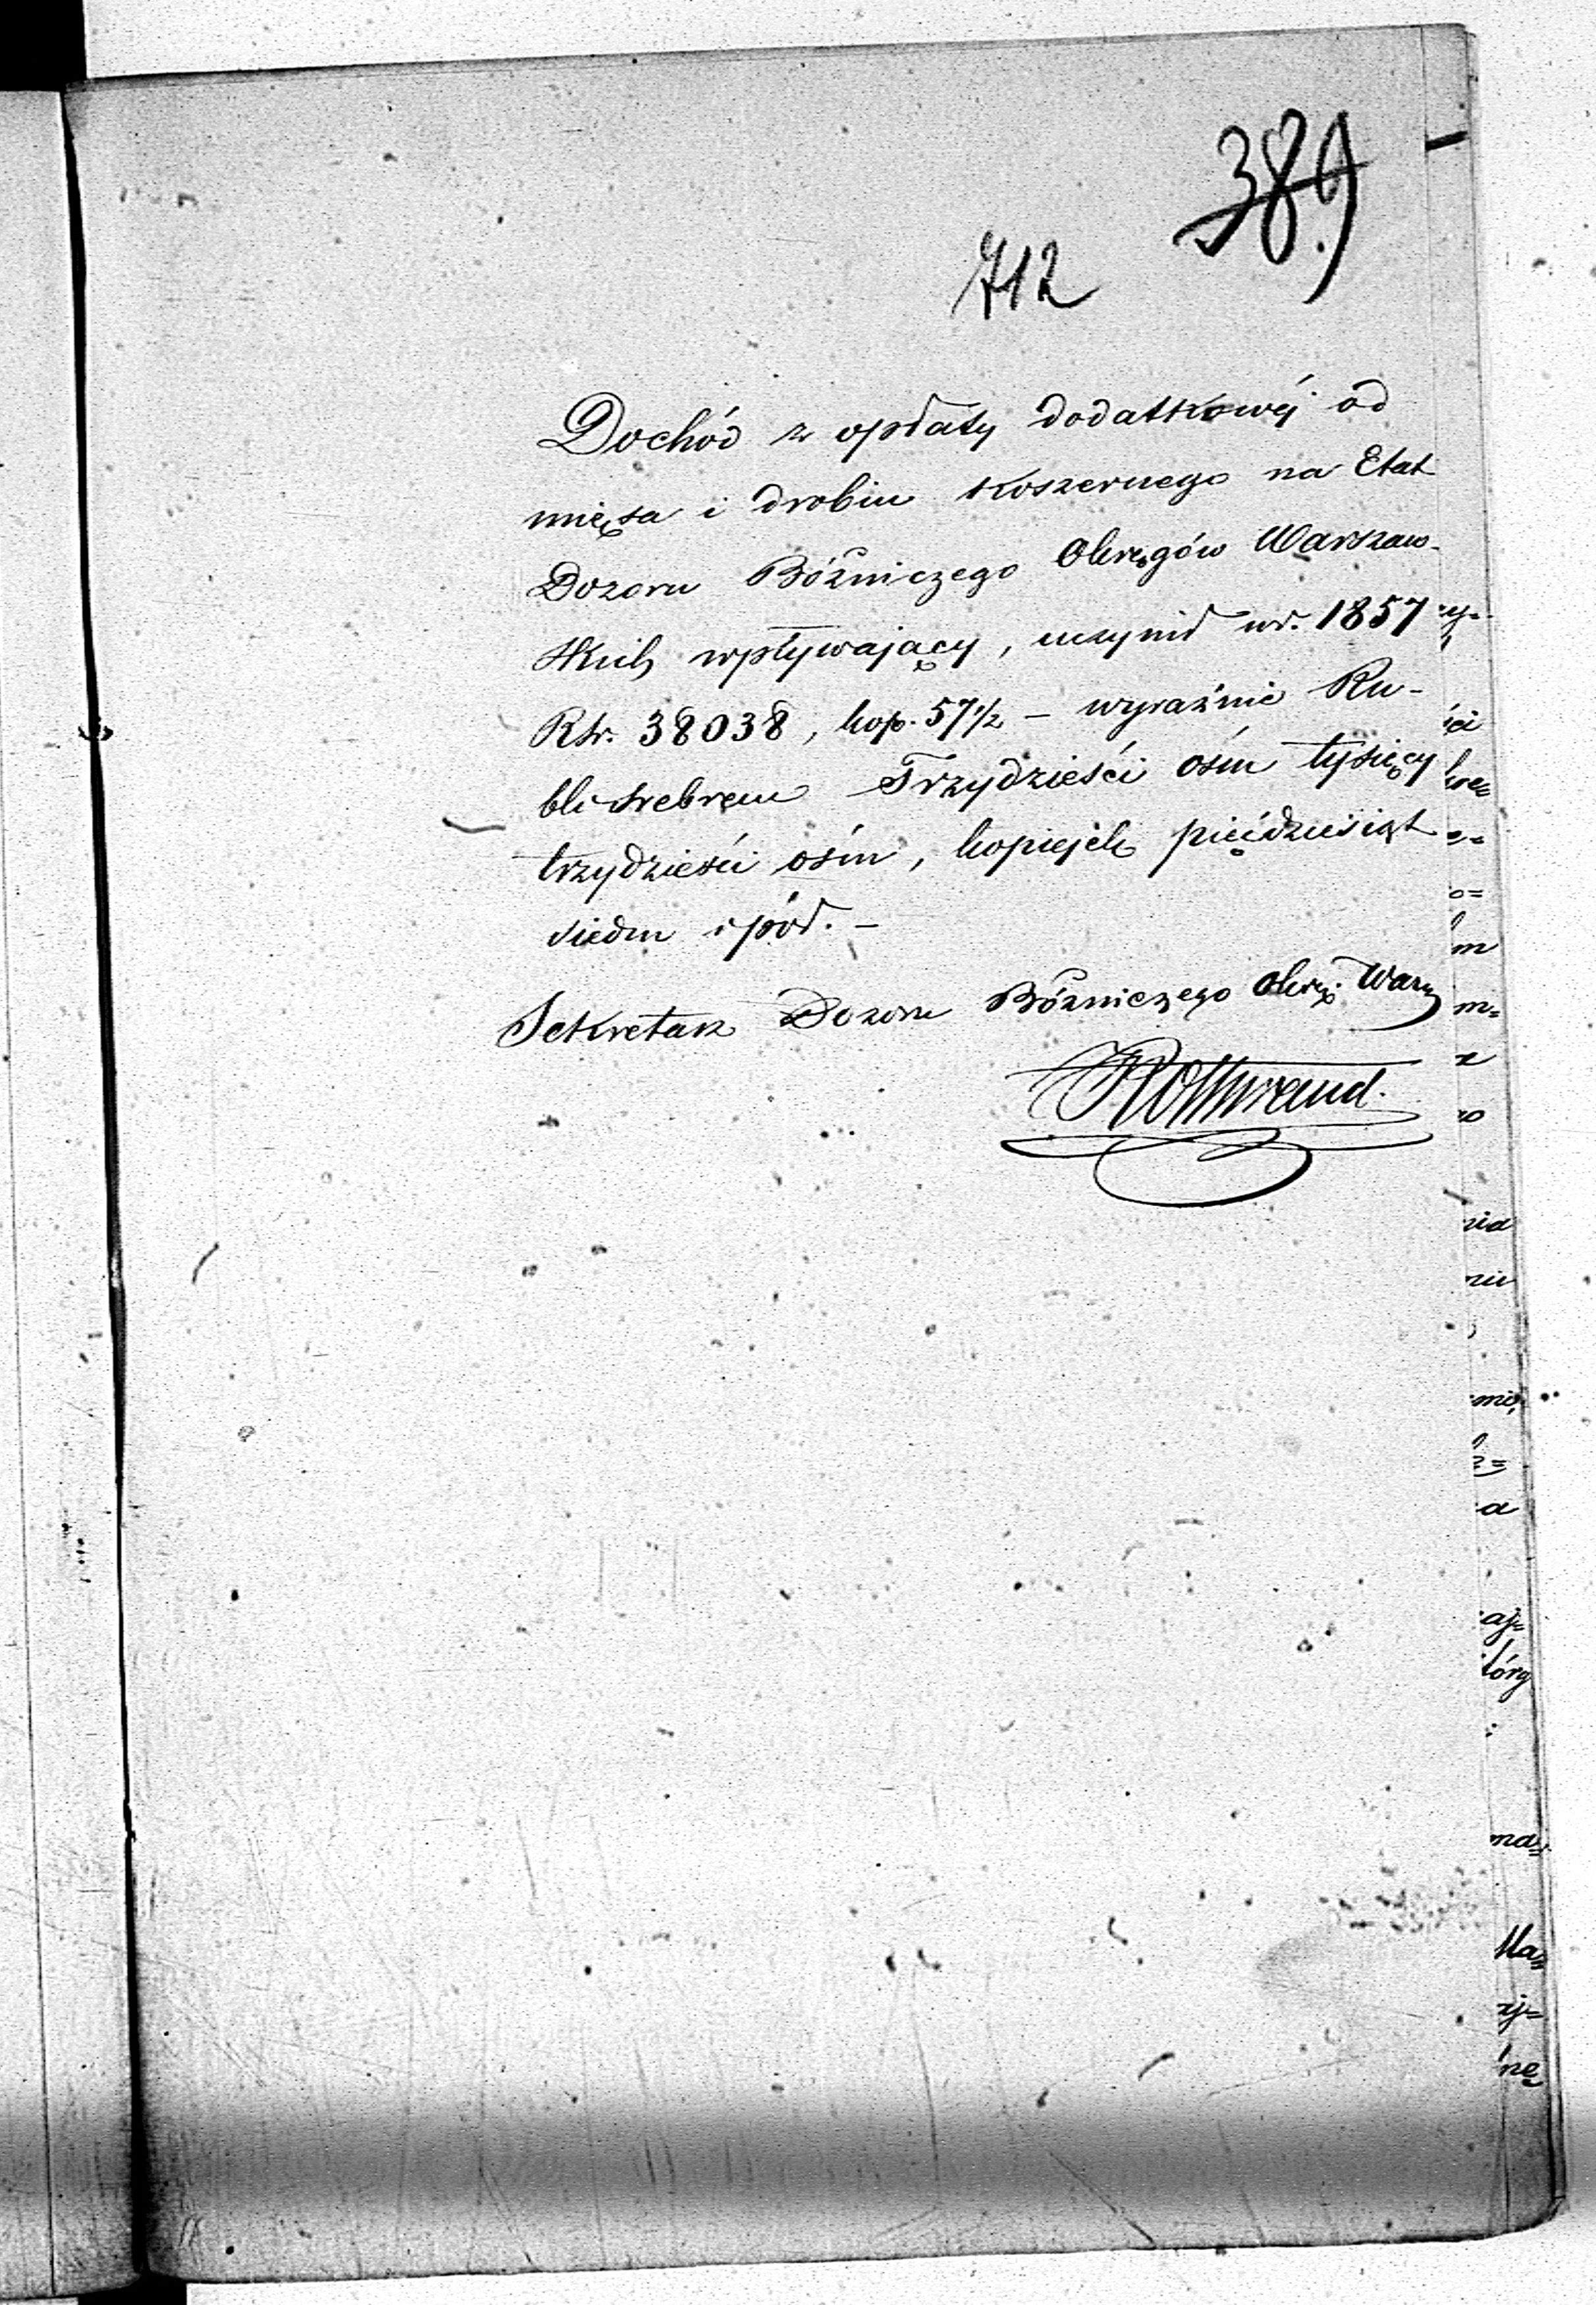 389
712
Dochód z opłaty dodatkowéj od
mięsa i drobiu koszernego na Etat
Dozoru Bóżniczego Okręgów Warszaw-
skich wpływający, uczynił w r. 1857
Rsr. 38038, kop. 57½ – wyraźnie Ru-
bli srebrem Trzydzieści ośm tysięcy
trzydzieści ośm, kopiejek pięćdziesiąt
siedm i pół. –
Sekretarz Dozoru Bóżniczego Okrę. Warsz